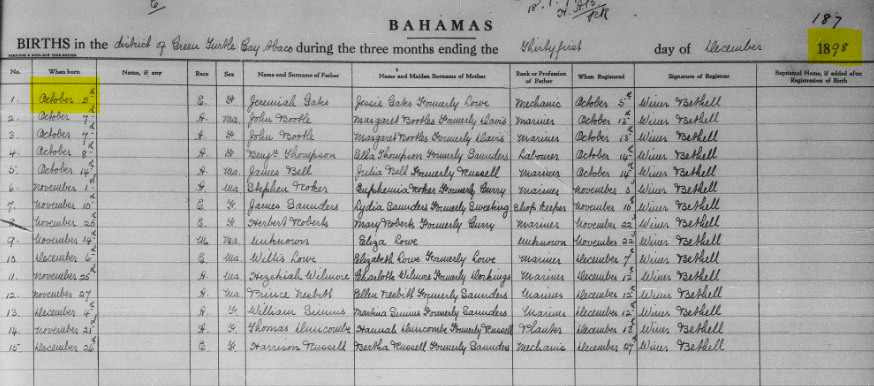 187
BAHAMAS
BIRTHS in the district of Green Turtle Bay Abaco during the three months ending the Thirty first day of December 1898
No. When born Name, if any Race Sex Name and Surname of Father Name and Maiden Surname of Mother Rank or Profession of Father When Registered Signature of Registrar Baptismal Name, if added after Registration of Birth
1. October 5th E. F. Jeremiah Jessie Formerly Lowe Mechanic October 5th Bethell
2. October 7th A. Ma. John Bootle Margaret Bootle Formerly Davis Mariner October 13th Bethell
3. October 7th A. F. John Bootle Margaret Bootle Formerly Davis Mariner October 13th Bethell
4. October 8th A. F. Benjn Thompson Ella Thompson Formerly Saunders Labourer October 14th Bethell
5. October 14th A. Ma. James Bell Julia Bell Formerly Russell Mariner October 14th Bethell
6. November 1st A. Ma. Stephen Euphemia Formerly Curry Mariner November 3rd Bethell
7. November 10th E. F. James Saunders Lydia Saunders Formerly Sweeting Shop Keeper November 10th Bethell
8. November 20th E. F. Herbert Roberts Mary Roberts Formerly Curry Mariner November 22nd Bethell
9. November 14th M. Ma. Unknown Eliza Lowe Unknown November 22nd Bethell
10. December 6th E. Ma. Willis Lowe Elizabeth Lowe Formerly Lowe Mariner December 7th Bethell
11. November 25th A. Ma. Hezekiah Wilmore Charlotte Wilmore Formerly Mariner December 12th Bethell
12. November 27 A. Ma. Prince Nesbitt Ellen Nesbitt Formerly Saunders Mariner December 12th Bethell
13. December 4th A. F. William Simms Martina Simms Formerly Saunders Mariner December 12th Bethell
14. November 21st A. F. Thomas Duncombe Hannah Duncombe Formerly Russell Planter December 13th Bethell
15. December 26th E. F. Harrison Russell Bertha Russell Formerly Saunders Mechanic December 27th Bethell